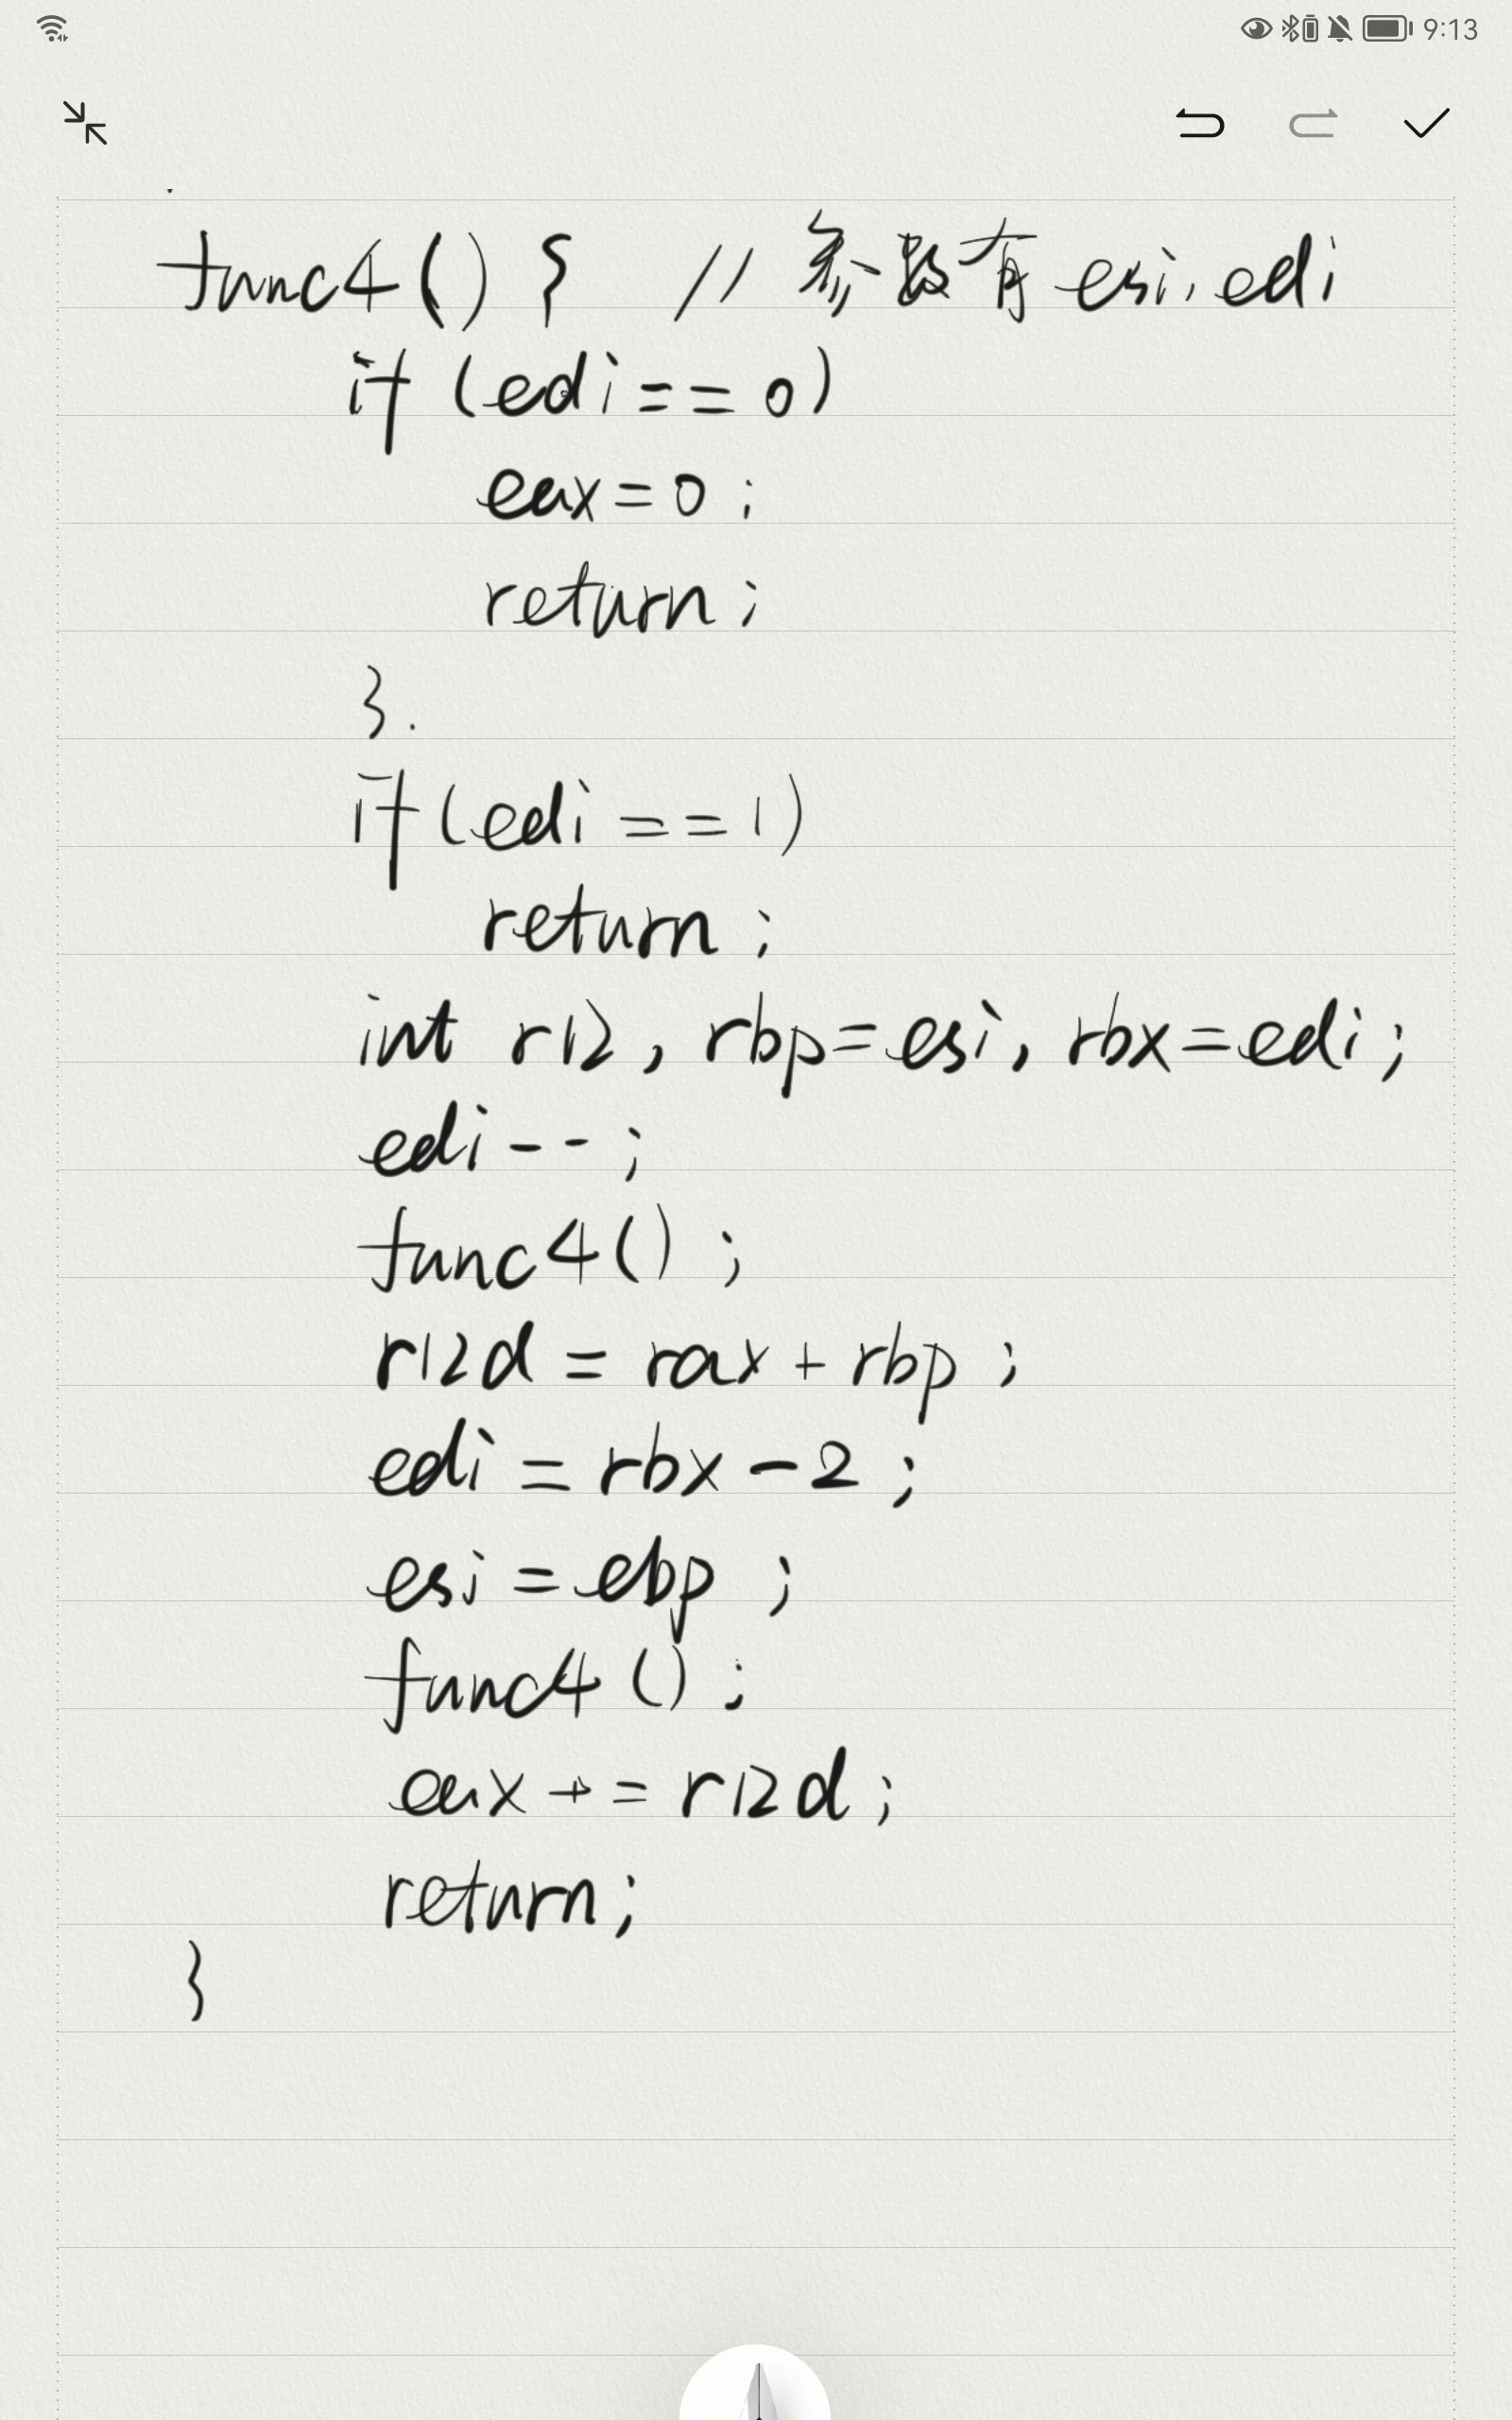 9:13
func4() { // 参数有 esi, edi
if (edi == 0)
eax = 0 ;
return ;
} .
if (edi == 1)
return ;
int r12 , rbp = esi , rbx = edi ;
edi -- ;
func4() ;
r12d = rax + rbp ;
edi = rbx - 2 ;
esi = ebp ;
func4 () ;
eax += r12d ;
return ;
}